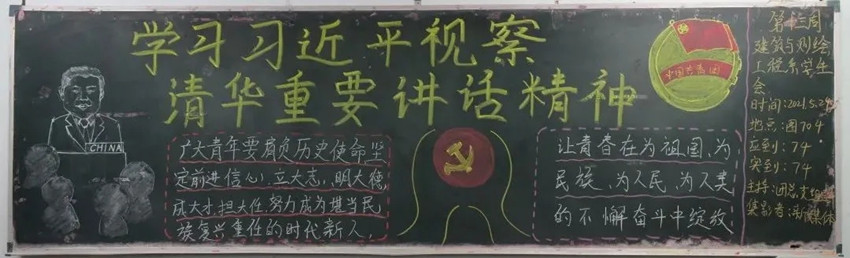 学习习近平视察
清华重要讲话精神
CHINA
广大青年要肩负历史使命坚
定前进信心,立大志、明大德
成大才、担大任努力成为堪当民
族复兴重任的时代新人,
让青春在为祖国、为
民族、为人民、为人类
的不懈奋斗中绽放
中国共青团
第十三周
建筑与测绘
工程系学生
会
时间:2021.5.24
地点:图704
应到:74
实到:74
主持:团总支